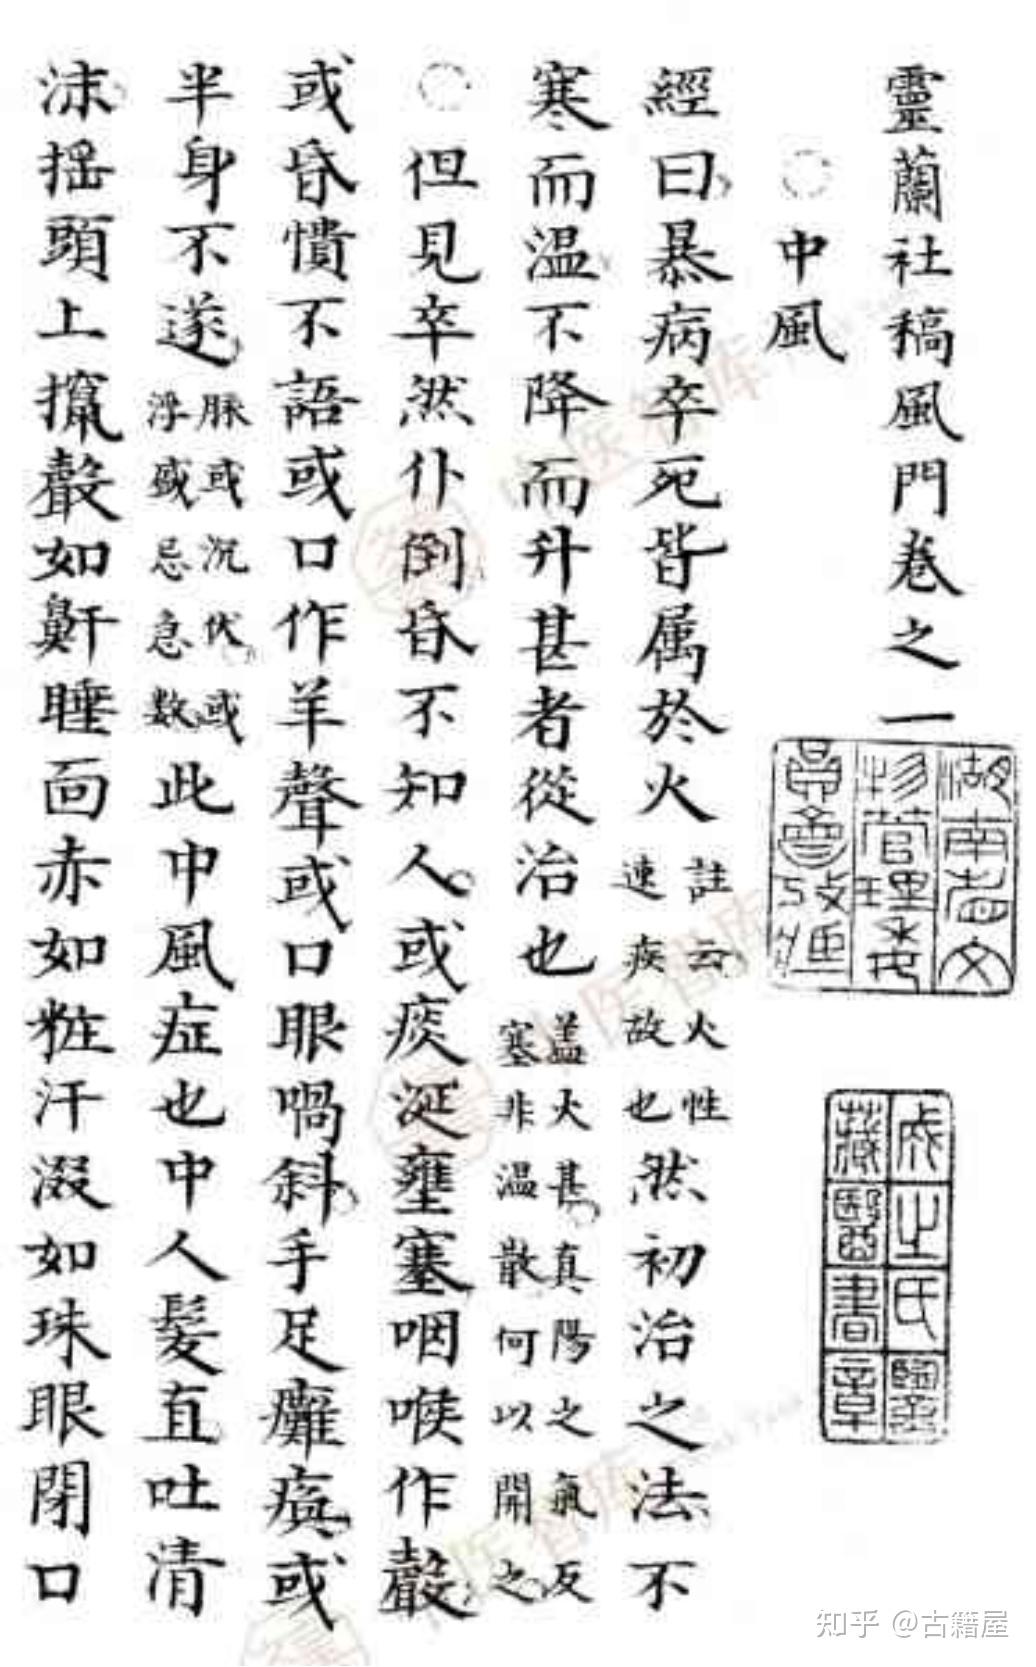 靈蘭社稿風門卷之一
中風
經曰暴病卒死皆属於火註云火性速疾故也然初治之法不
寒而温不降而升甚者從治也盖火甚真陽之氣反塞非温散何以開之
但見卒然仆倒昏不知人或痰涎壅塞咽喉作聲
或昏憒不語或口作羊聲或口眼喎斜手足癱瘓或
半身不遂脉或沉伏或浮盛忌急数此中風症也中人髮直吐清
沫摇頭上攛聲如鼾睡面赤如粧汗濈如珠眼閉口
湖南省文
物管理委
員會改造
藏醫書章
知乎 @古籍屋